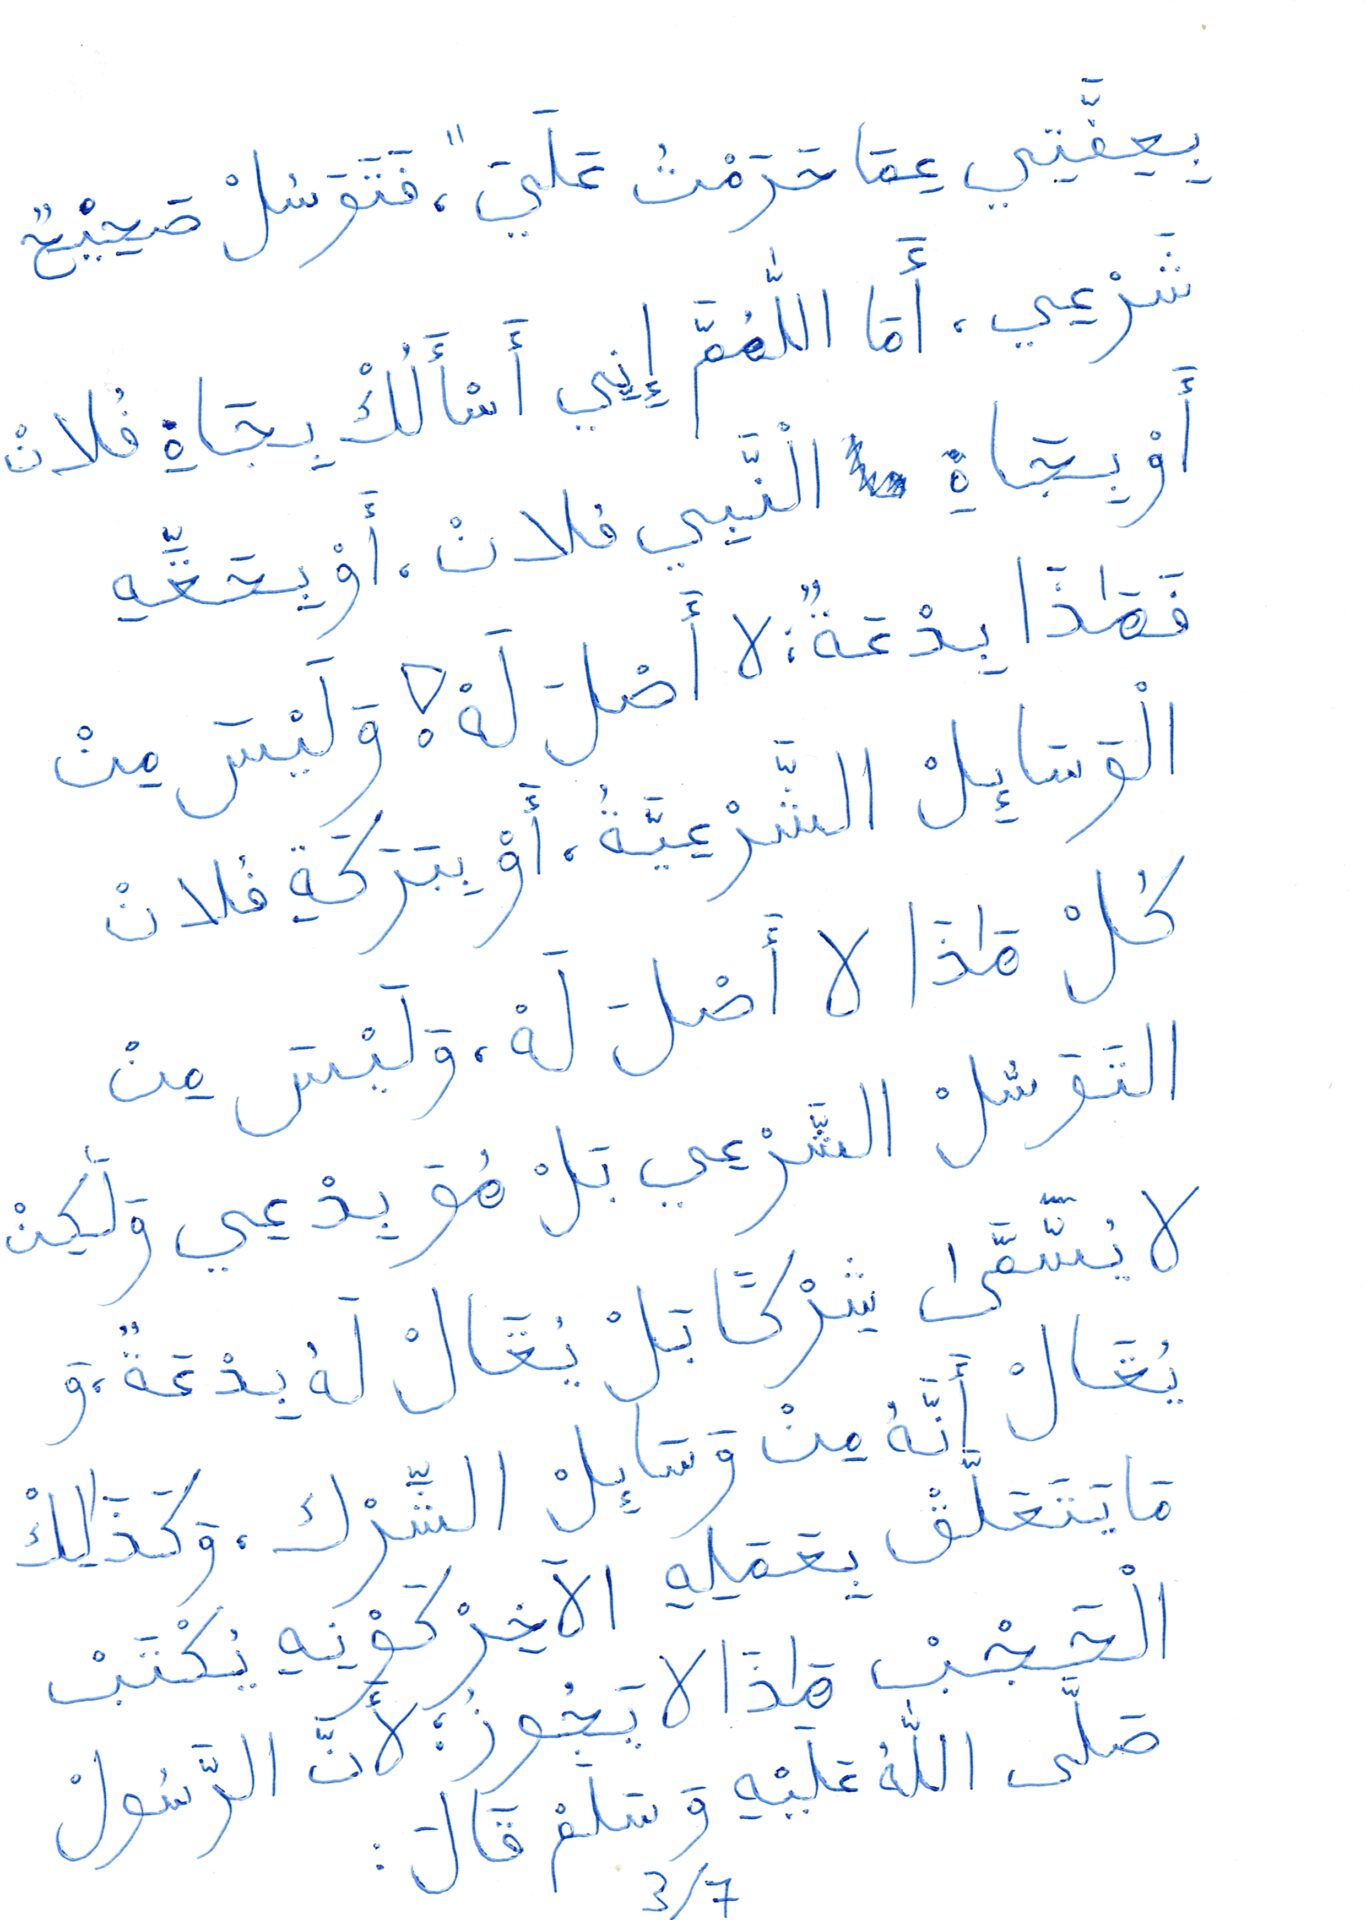 يِعِفَّتِي عِمَا حَرَمْتُ عَلَيَ"، فَتَوَسُلْ صَحِيْحٌ
شَرْعِي، أَمَا اللّٰهُمَّ إِنِي أَسْأَلُكْ بِجَاهِ فُلانْ
أَوْ بِجَاهِ الْنَّبِي فلانْ، أَوْ بِحَقِّهِ
فَهٰذَا بِدْعَةٌ؛ لا أَصْلَ لَهْ! وَلَيْسَ مِنْ
الْوَسَايِٕلْ الشَّرْعِيَّةُ، أَوْ بِبَرَكَةِ فُلانْ
كُلْ هٰذَا لا أَصْلَ لَهْ، وَلَيْسَ مِنْ
التَوَسُّلْ الشَّرْعِي بَلْ هُوَ بِدْعِي وَلَٰكِنْ
لا يُسَّمَّىٰ شِرْكًا بَلْ يُقَالْ لَهُ بِدْعَةٌ، وَ
يُقَالْ أَنَّهُ مِنْ وَسَايِٕلْ الشِّرْك، وَكَذَٰلِكْ
مَا يَتَعَلَّقْ بِعَمَلِهِ الآخِرْ كَوْنِهِ يُكْتَبْ
الْحَجْبْ هٰذَا لا يَجُوزُ؛ لأَنَّ الرَّسُولْ
صَلَّى اللّٰهُ عَلَيْهِ وَسَلَمْ قَالَ:
3/7